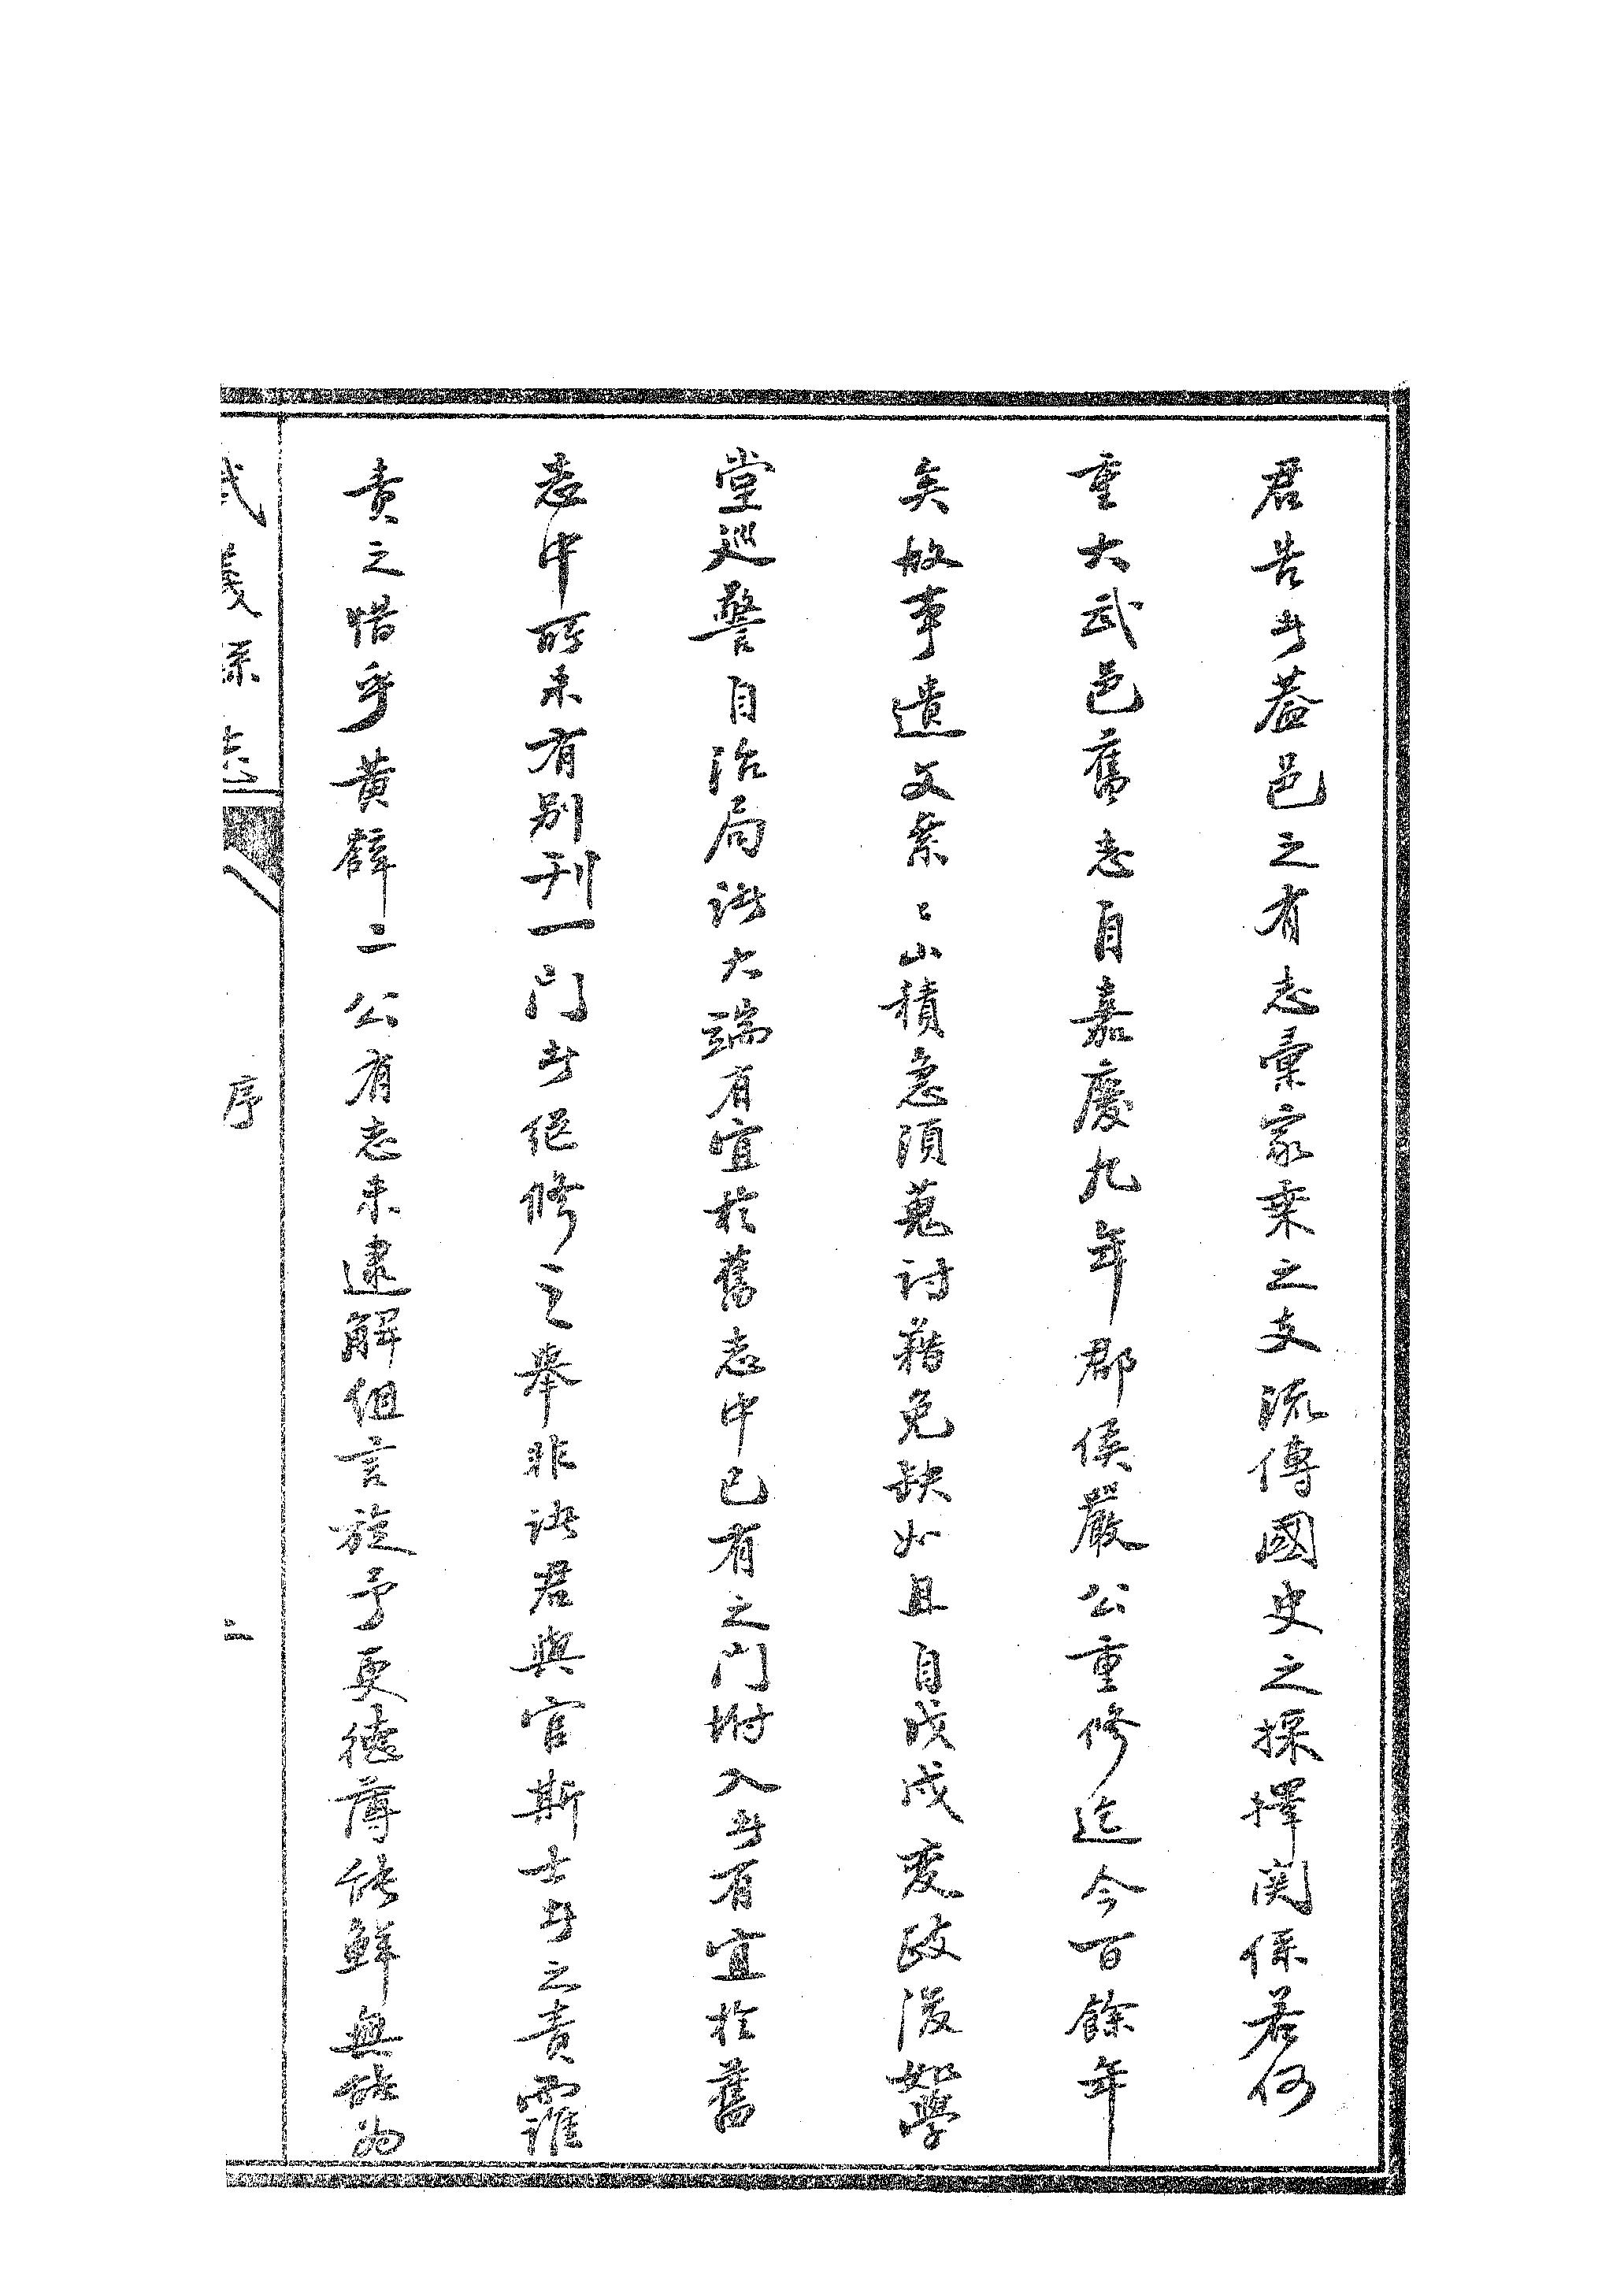 君者蓋邑之有志彙家乘之支流傳國史之採擇関係若何
重大武邑舊志自嘉慶九年郡侯嚴公重修迄今百餘年
矣故事遺文案〻山積急須蒐討藉免缺如且自戊戌変政後如學
堂巡警自治局諸大端有宜於舊志中已有之門坿入者有宜於舊
志中所未有別刊一門者修之舉非諸君與官斯土者之責誰
責之惜乎黄薛二公有志未逮解組言旋予更德薄能鮮無能為
武義縣志
序
二